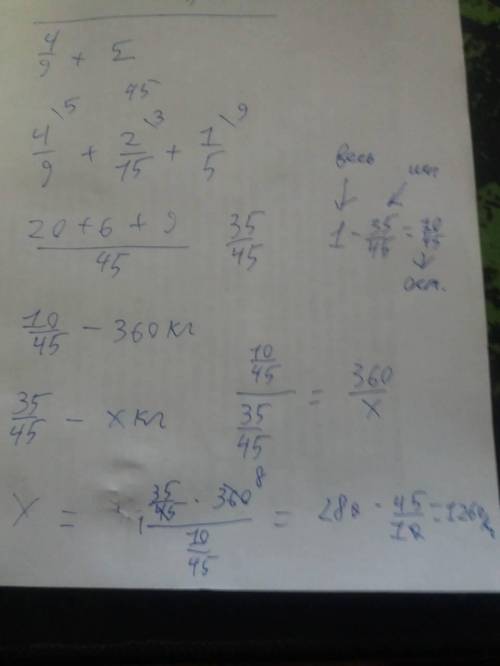 4/9 + 5
45
4/9 \5 + 2/15 \3 + 1/5 \9
20 + 6 + 9 / 45   35/45
весь
1 - 35/45 = 10/45
ост.
10/45 - 360 кг
35/45 - х кг
10/45 / 35/45 = 360/х
х = 35/45 · 360 8 / 10/45 = 280 · 45/10 = 1260